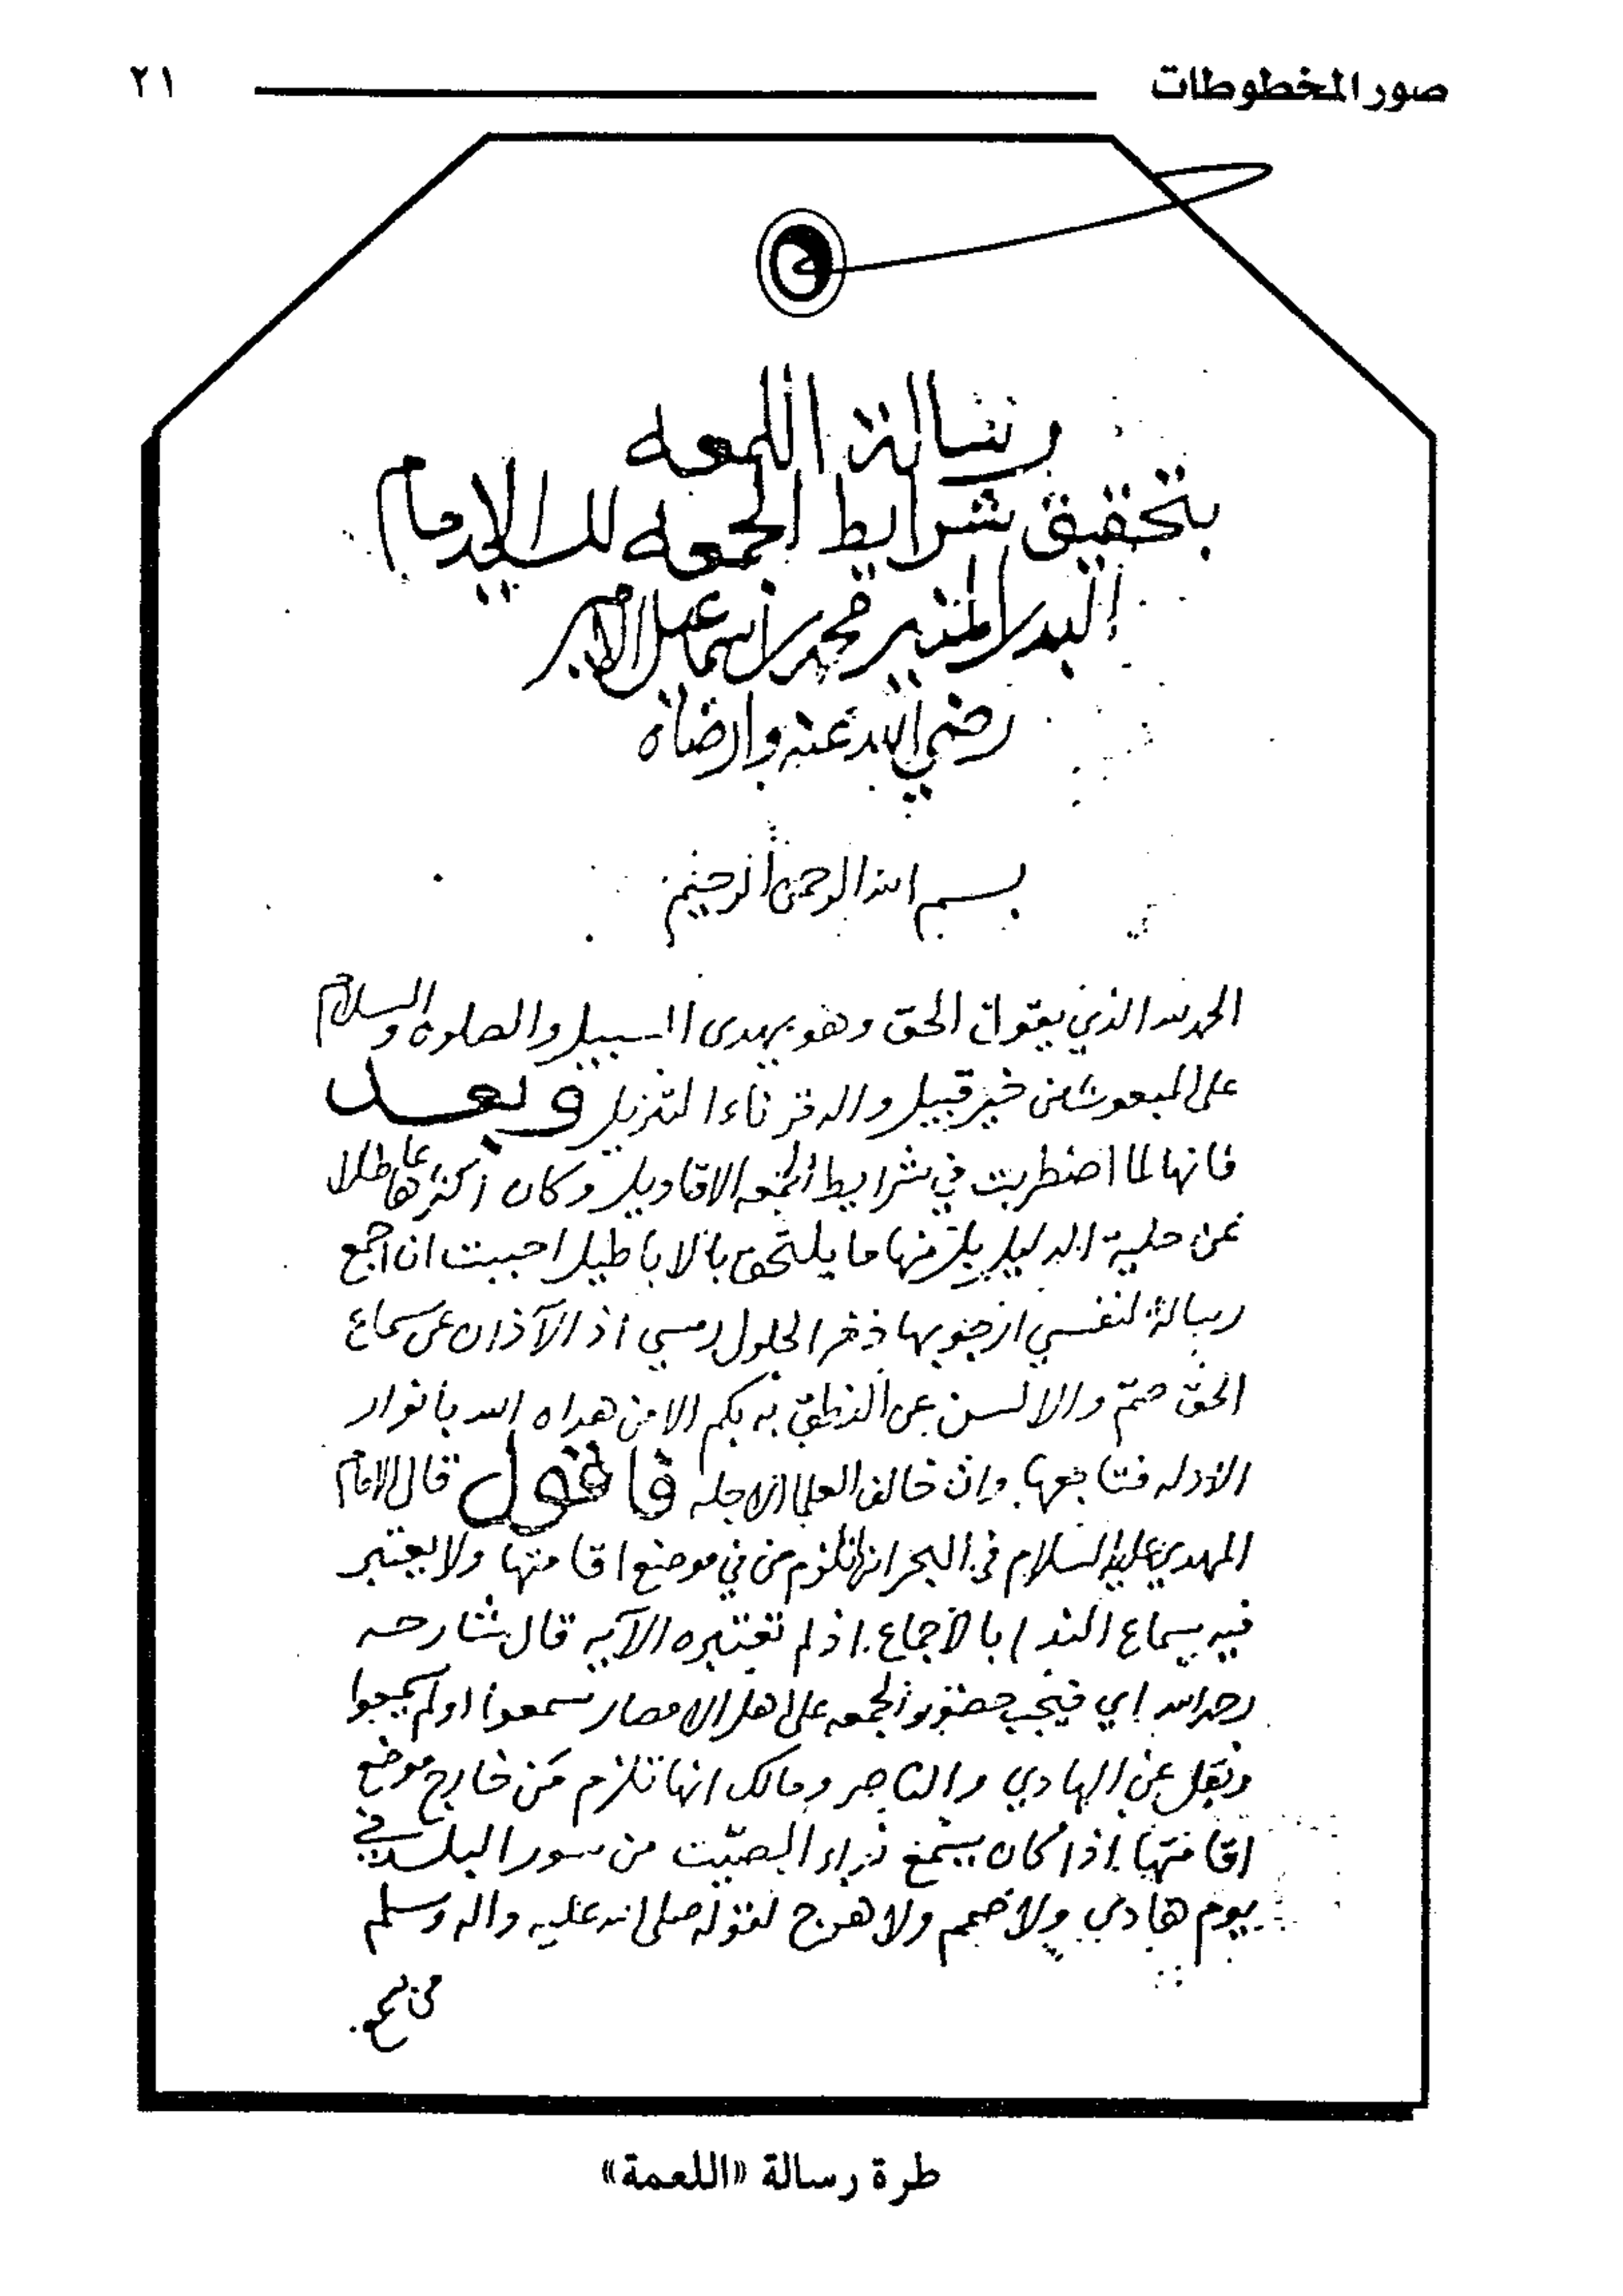 صور المخطوطات ٢١
رسالة اللمعه
بتحقيق شرايط الجمعه للسيد الامام
البدر المنير محمد بن اسماعيل الامير
رضي الله عنه وارضاه
بسم الله الرحمن الرحيم
الحمد لله الذي يقول الحق وهو يهدى السبيل والصلوة والسلام
على المبعوث من خير قبيل واله قرناء التنزيل وبعد
فانها لما اضطربت في شرايط الجمعه الاقاويل وكان اكثرها عاطلا
عن حلية الدليل بل منها ما يلتحق بالاباطيل احببت ان اجمع
رسالة لنفسي ارجو بها ذخر الحلول رمسي اذ الآذان عن سماع
الحق صم والالسن عن النطق به بكم الا من هداه الله بانوار
الادله فتابعها وان خالف العلما الاجله فاقول قال الامام
المهدي عليه السلام في البحر انها تلزم من في موضع اقامتها ولا يعتبر
فيه سماع الندا بالاجماع اذ لم تعتبره الآيه قال شارحه
رحمه الله اي فيجب حضور الجمعه على اهل الامصار سمعوا او لم يسمعوا
ونقل عن الهادي والناصر ومالك انها تلزم من خارج موضع
اقامتها اذا كان يسمع نداء الصيت من سور البلد في
يوم هادي ولا ضجم ولا هرج لقوله صلى الله عليه واله وسلم
من سمع
طرة رسالة «اللعمة»